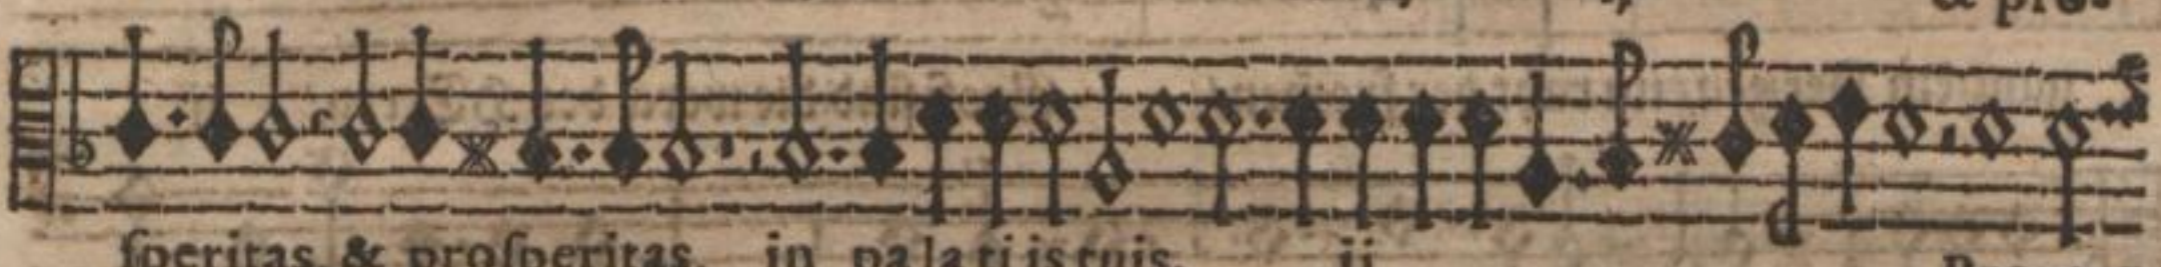 & pros-
ſperitas & proſperitas in palatiis tuis. ij